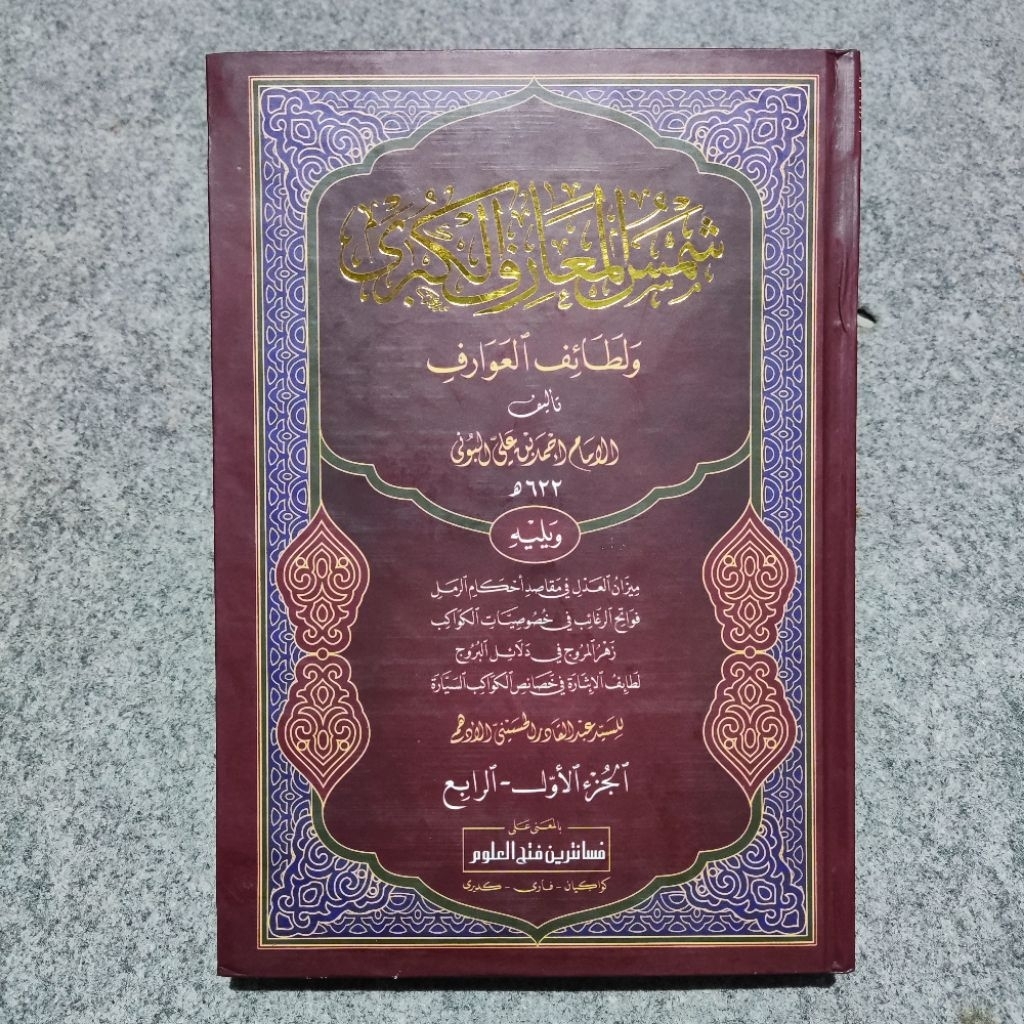 شَمْسُ الْمَعَارِفِ الْكُبْرَى
وَلَطَائِفُ ٱلعَوَارِفِ
تأليف
الإمام أحمد بن علي البوني
٦٢٢هـ
وَيَليْهِ
مِيزَانُ ٱلعَدْلِ فِي مَقَاصِدِ أَحْكَامِ ٱلرَمَلِ
فَوَاتِحُ ٱلرَغَائِبِ فِي خُصُوصِيَّاتِ ٱلكَوَاكِبِ
زَهْرُ ٱلمُرُوجِ فِي دَلَائِلِ ٱلبُرُوجِ
لَطَائِفُ ٱلإِشَارَةِ فِي خَصَائِصِ ٱلكَوَاكِبِ ٱلسَيَّارَةِ
للسيد عبد القادر الحسيني الأدهمي
ٱلجُزْءُ ٱلأَوّل - ٱلرَابِع
بالمعنى على
فسانترين فتح العلوم
كواكيان - فارى - كديرى